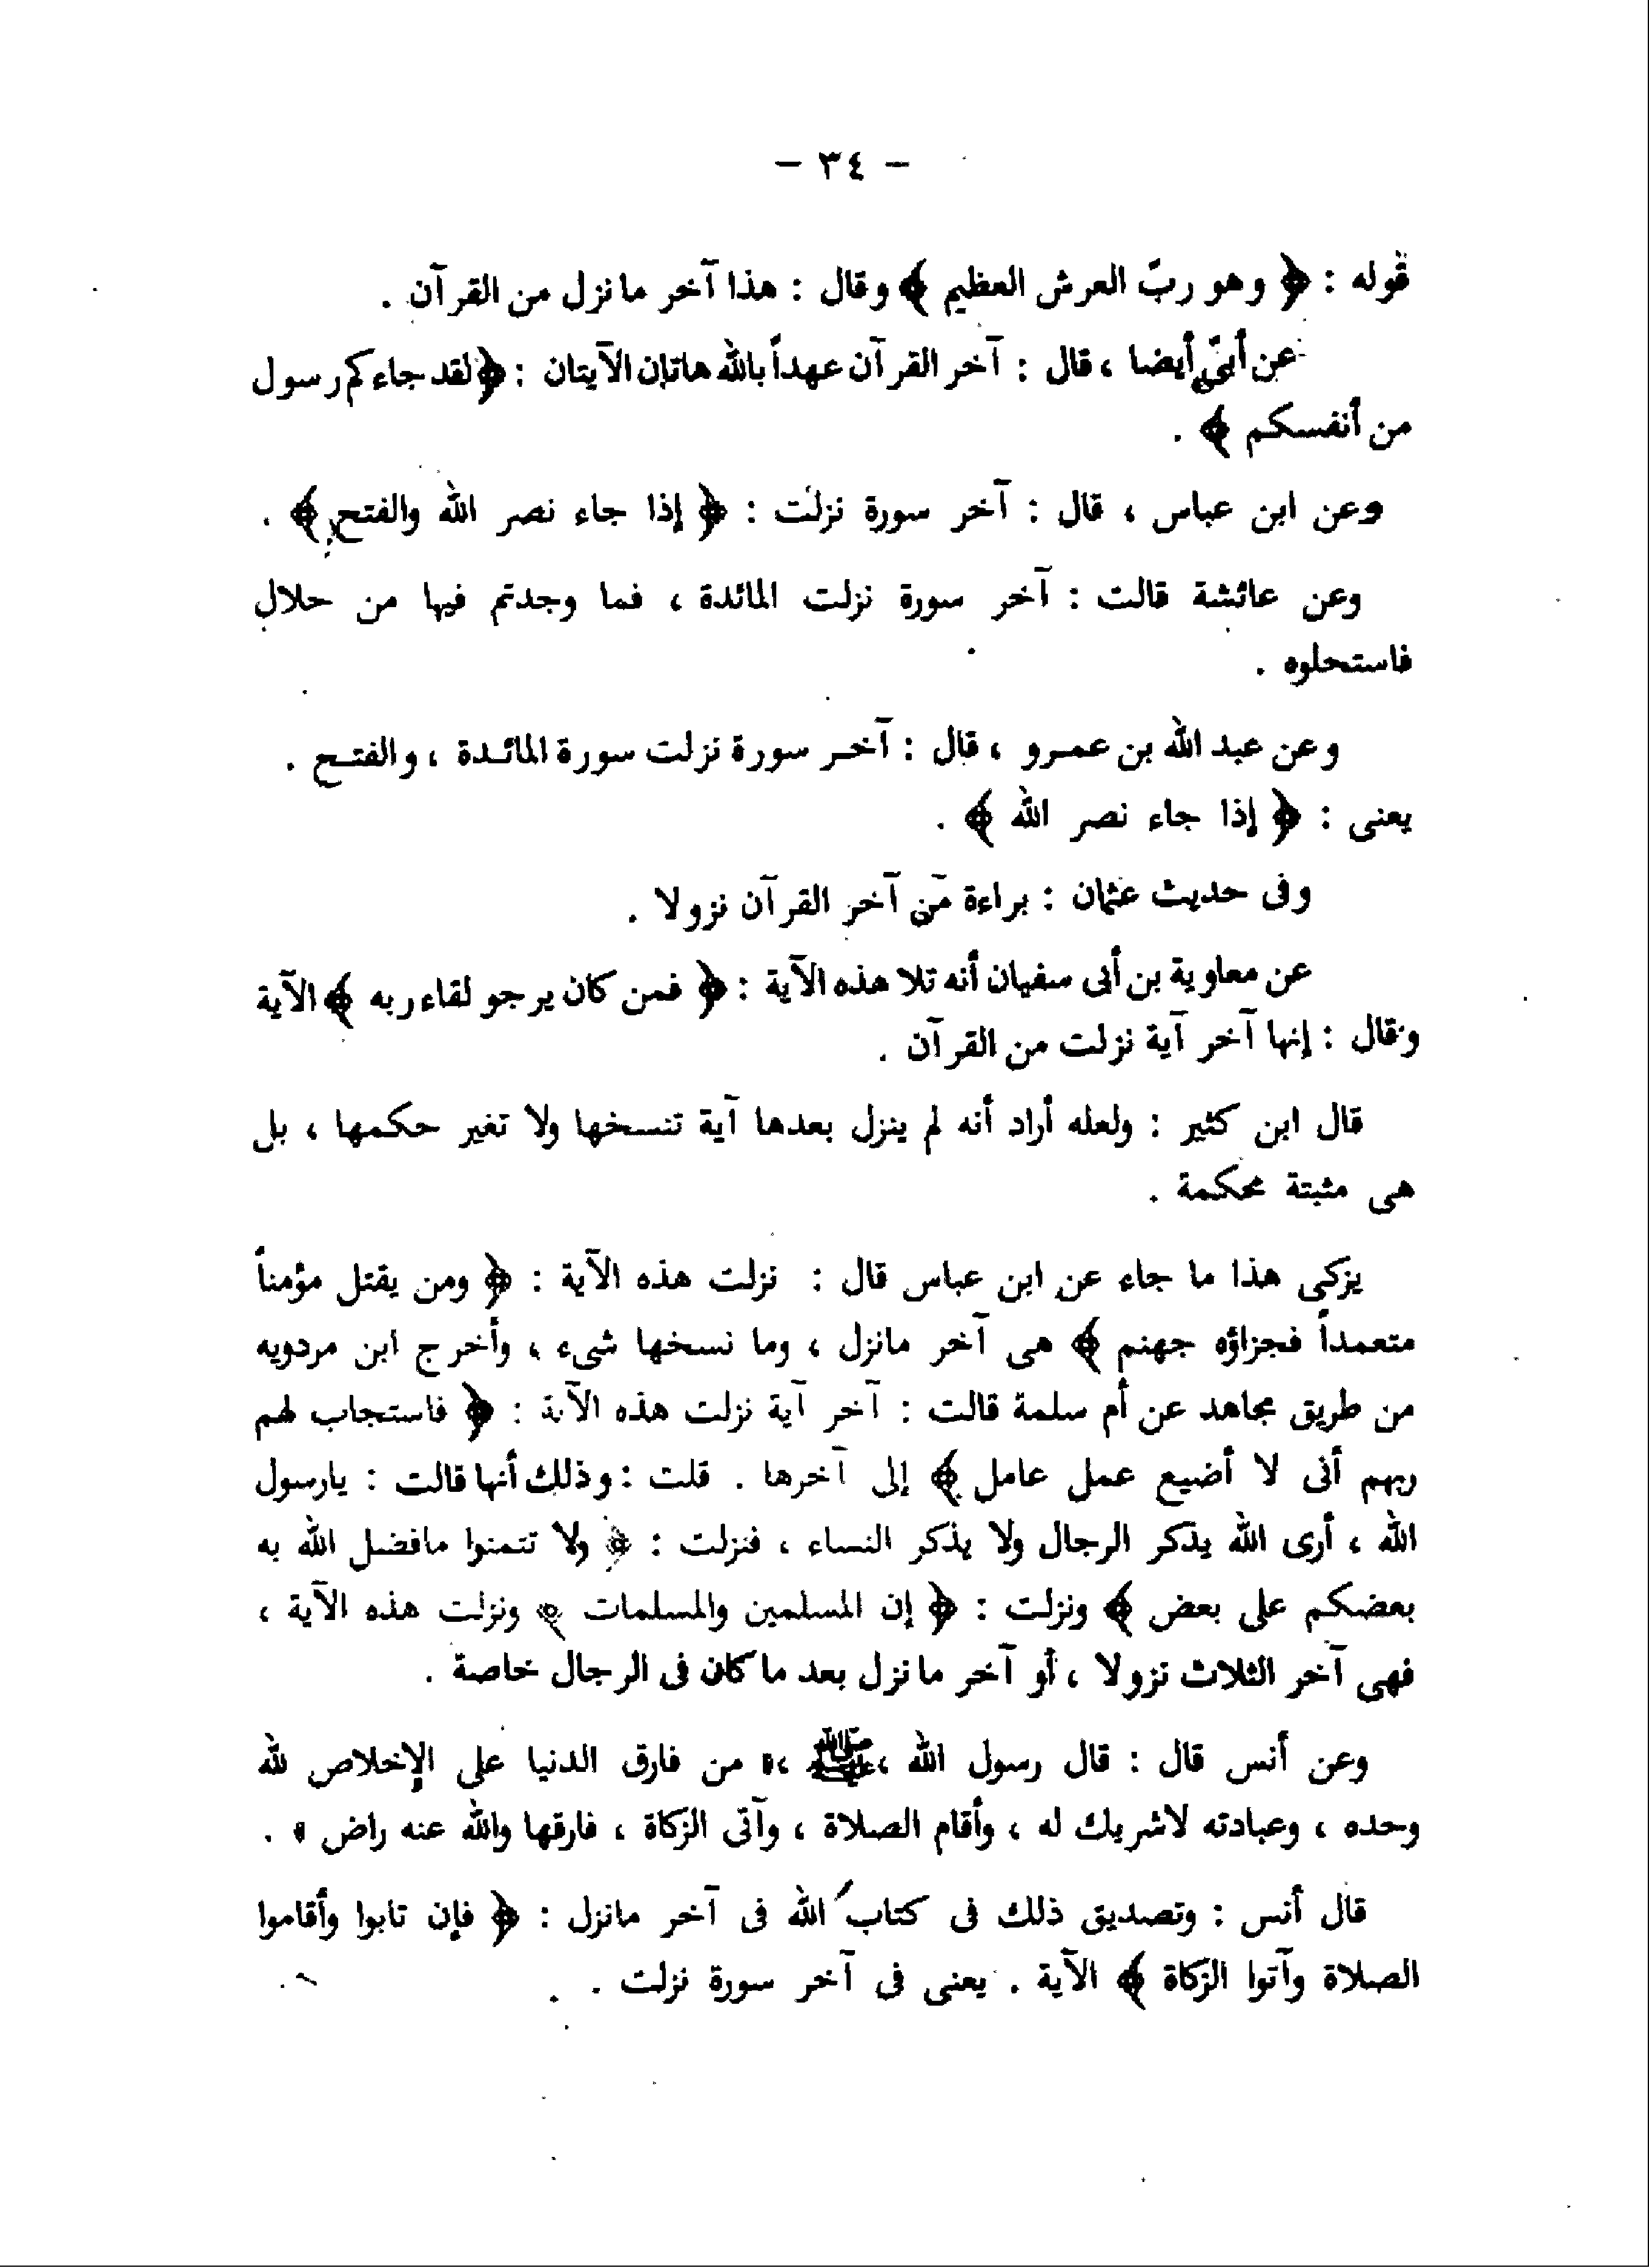 - ٣٤ -
قوله : ﴿ وهو ربّ العرش العظيم ﴾ وقال : هذا آخر مانزل من القرآن .
عن أبىّ أيضا ، قال : آخر القرآن عهداً بالله هاتان الآيتان : ﴿ لقد جاءكم رسول
من أنفسكم ﴾ .
وعن ابن عباس ، قال : آخر سورة نزلت : ﴿ إذا جاء نصر الله والفتح ﴾ .
وعن عائشة قالت : آخر سورة نزلت المائدة ، فما وجدتم فيها من حلال
فاستحلوه .
وعن عبد الله بن عمرو ، قال : آخر سورة نزلت سورة المائدة ، والفتح .
يعنى : ﴿ إذا جاء نصر الله ﴾ .
وفى حديث عثمان : براءة من آخر القرآن نزولا .
عن معاوية بن أبى سفيان أنه تلا هذه الآية : ﴿ فمن كان يرجو لقاء ربه ﴾ الآية
وقال : إنها آخر آية نزلت من القرآن .
قال ابن كثير : ولعله أراد أنه لم ينزل بعدها آية تنسخها ولا تغير حكمها ، بل
هى مثبتة محكمة .
يزكى هذا ما جاء عن ابن عباس قال : نزلت هذه الآية : ﴿ ومن يقتل مؤمناً
متعمداً فجزاؤه جهنم ﴾ هى آخر مانزل ، وما نسخها شىء ، وأخرج ابن مردويه
من طريق مجاهد عن أم سلمة قالت : آخر آية نزلت هذه الآية : ﴿ فاستجاب لهم
ربهم أنى لا أضيع عمل عامل ﴾ إلى آخرها . قلت : وذلك أنها قالت : يارسول
الله ، أرى الله يذكر الرجال ولا يذكر النساء ، فنزلت : ﴿ ولا تتمنوا مافضل الله به
بعضكم على بعض ﴾ ونزلت : ﴿ إن المسلمين والمسلمات ﴾ ونزلت هذه الآية ،
فهى آخر الثلاث نزولا ، أو آخر مانزل بعد ما كان فى الرجال خاصة .
وعن أنس قال : قال رسول الله ، ﷺ ، « من فارق الدنيا على الإخلاص لله
وحده ، وعبادته لاشريك له ، وأقام الصلاة ، وآتى الزكاة ، فارقها والله عنه راض » .
قال أنس : وتصديق ذلك فى كتاب الله فى آخر مانزل : ﴿ فإن تابوا وأقاموا
الصلاة وآتوا الزكاة ﴾ الآية . يعنى فى آخر سورة نزلت .